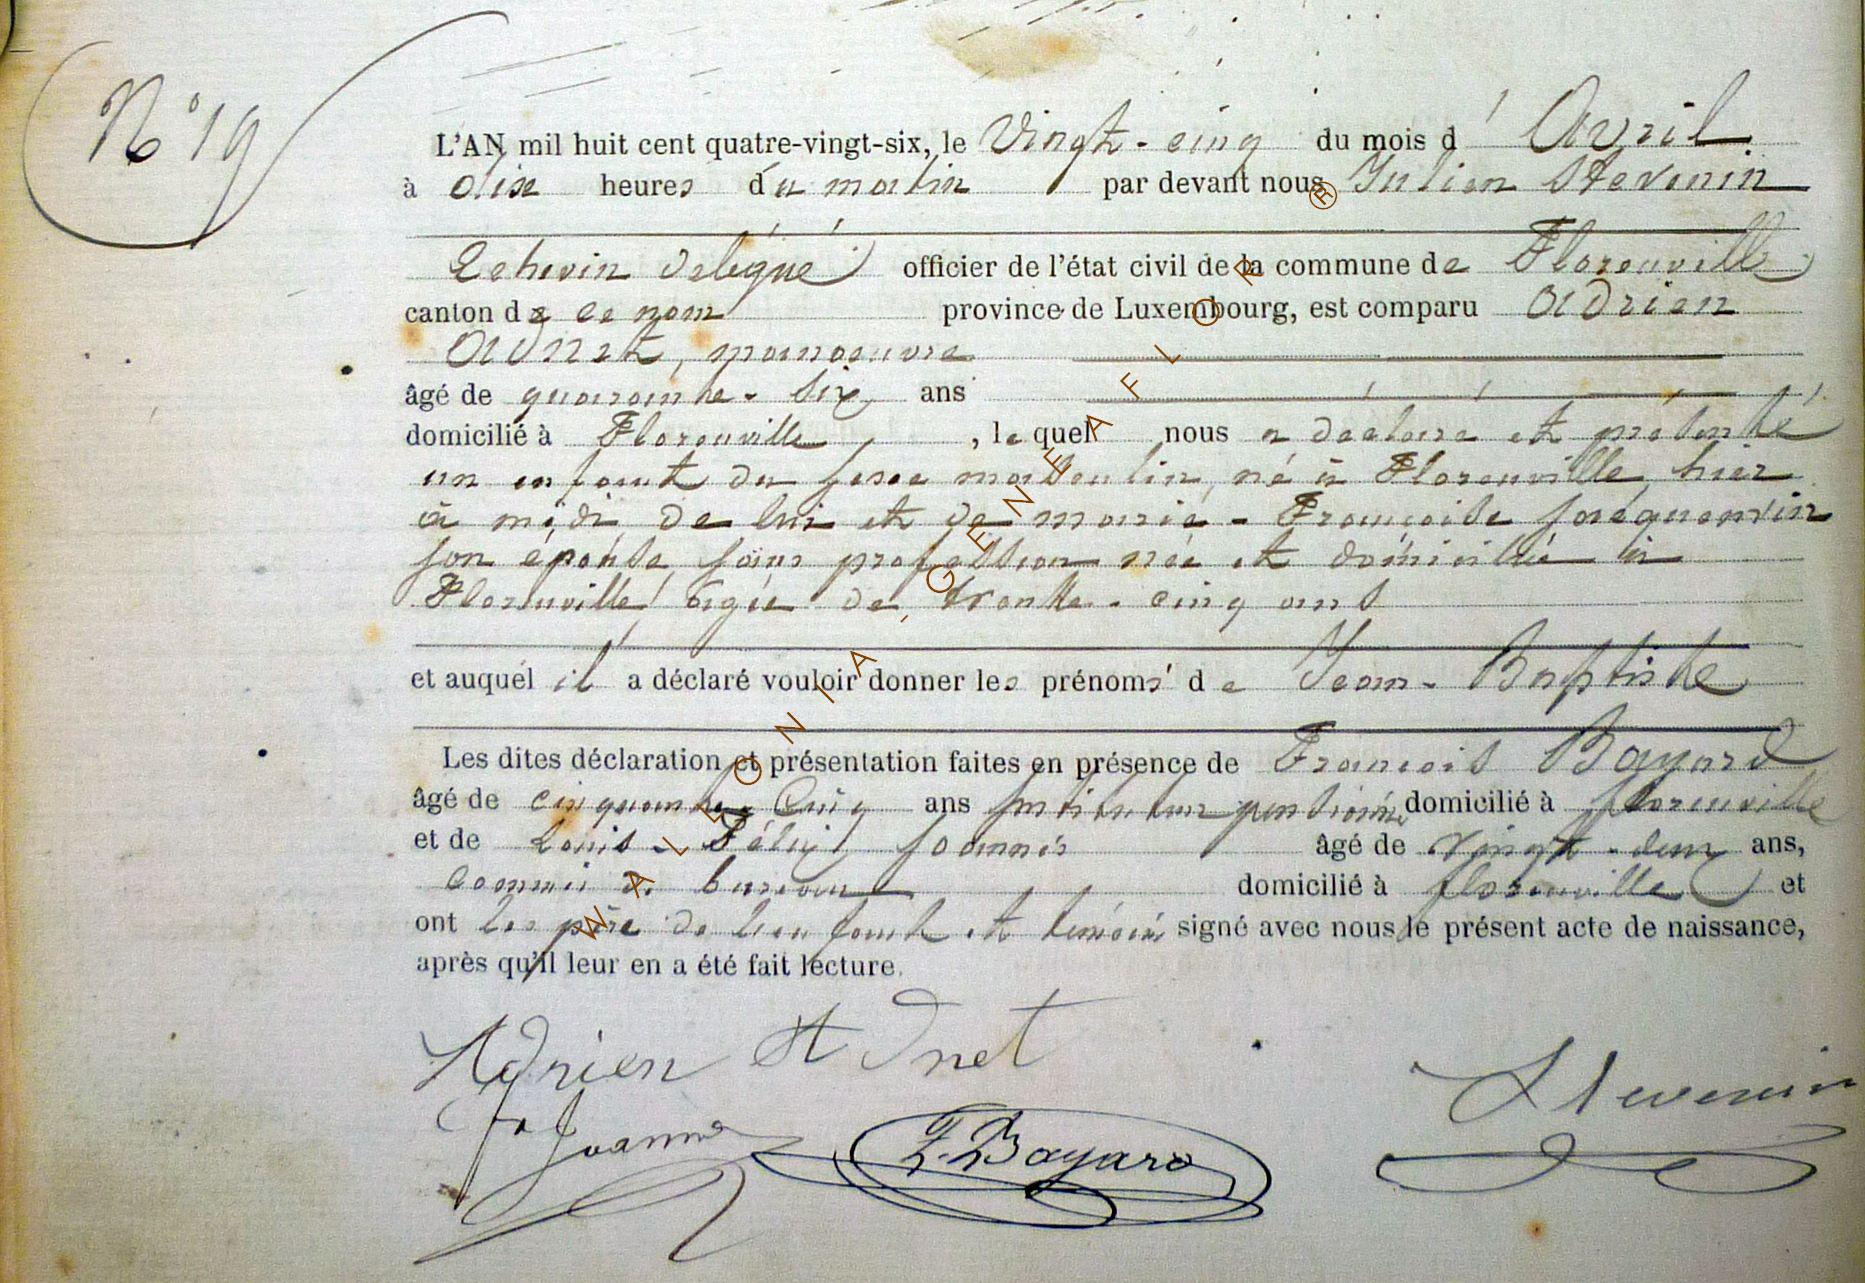 N° 19
L'AN mil huit cent quatre-vingt-six, le Vingt-cinq du mois d'Avril
à dix heures du matin par devant nous Julien Stevenin
Echevin délégué officier de l'état civil de la commune de Florenville
canton de ce nom province de Luxembourg, est comparu Adrien
Adnet, manoeuvre
âgé de quarante-six ans
domicilié à Florenville, lequel nous a déclaré et présenté
un enfant du sexe masculin, né à Florenville, hier
à midi de lui et de Marie-Françoise
son épouse sans profession née et domiciliée à
Florenville âgée de trente-cinq ans
et auquel il a déclaré vouloir donner les prénoms de Jean-Baptiste
Les dites déclaration et présentation faites en présence de François Bayard
âgé de cinquante Cinq ans instituteur pensionné domicilié à Florenville
et de Louis-Félix Joannès âgé de vingt-deux ans,
Commis de bureau domicilié à florenville et
ont les père de l'enfant et témoins signé avec nous le présent acte de naissance,
après qu'il leur en a été fait lecture.
Adrien Adnet
Joannes
F. Bayard
Stevenin
WALLONIA-GENEAFLOR ®